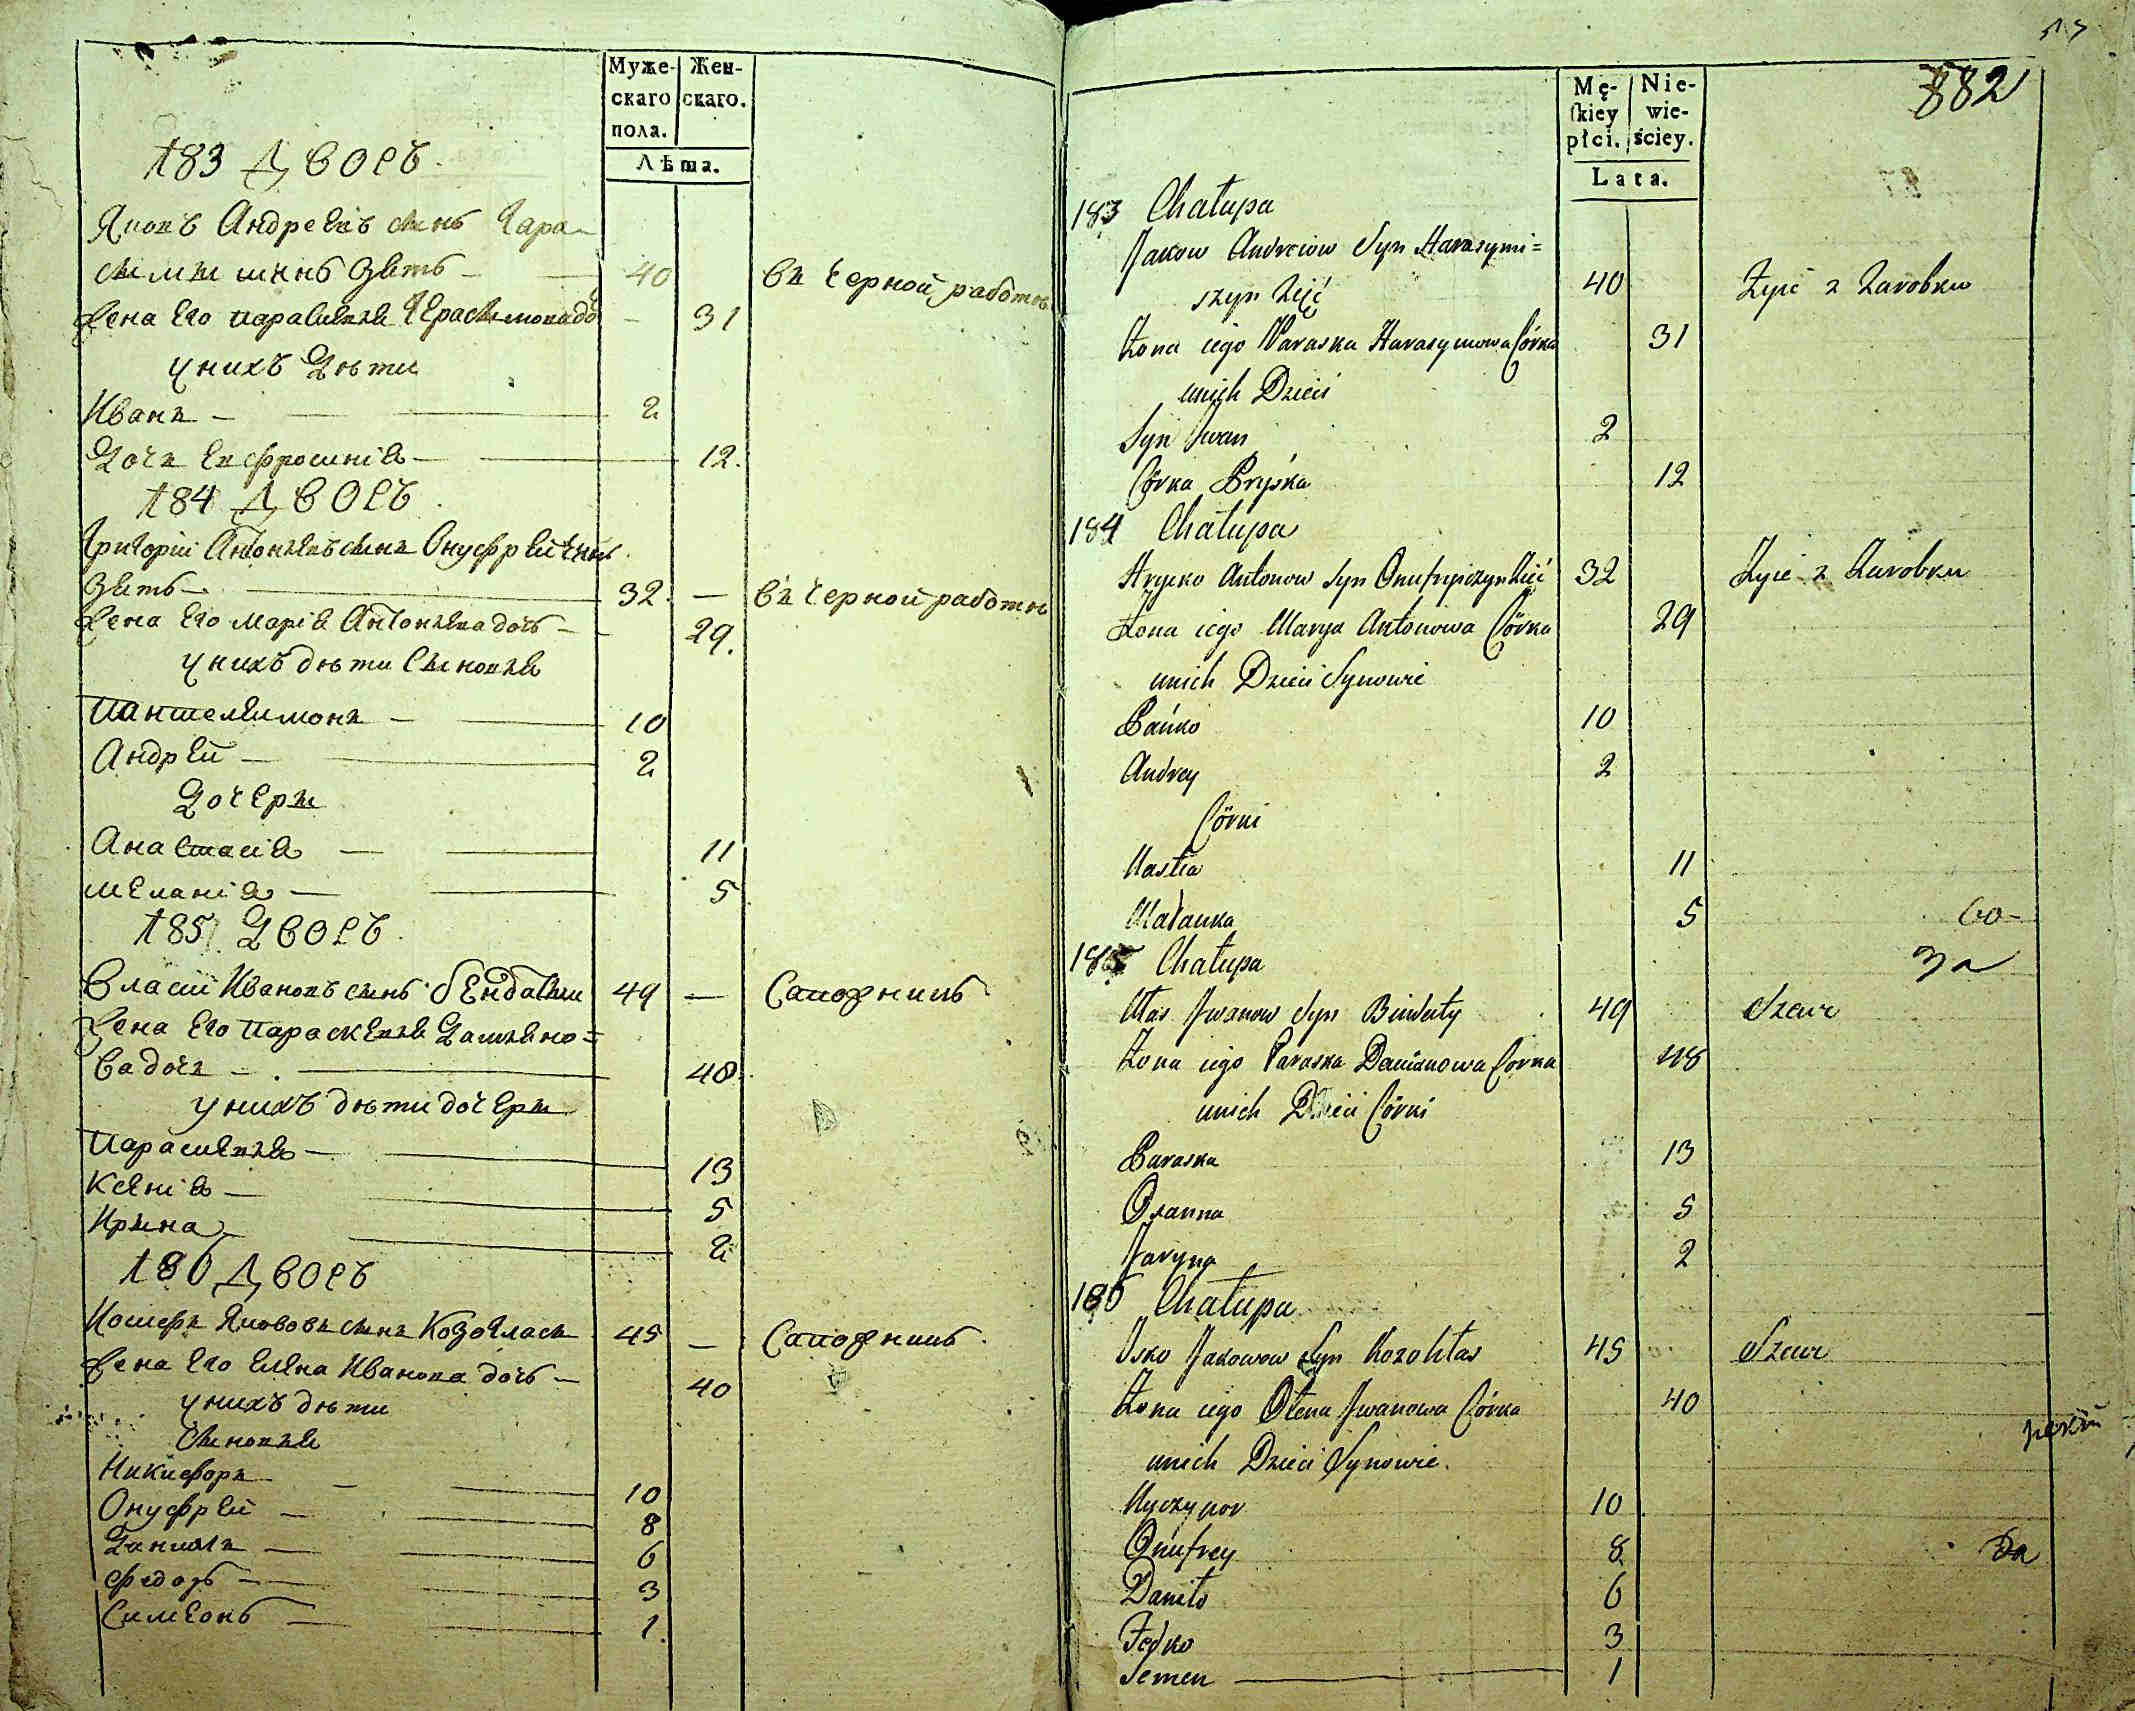 Муже-
скаго
пола.
Жен-
скаго.
Лѣта.
183 Дворъ
Яковъ Андреевъ сынъ Гара-
сымышинъ Зять 40 въ черной работѣ
Жена Его Парасковья Герасимова до 31
У нихъ Дѣти
Иванъ 2
Дочь Евфросинія 12.
184 Дворъ
Григорій Антоньевъ сынъ Онуфрейчинъ
Зять 32. — въ черной работѣ
Жена Его Марія Антоньева дочь 29.
У нихъ дѣти Сыновья
Пантелеимонъ 10
Андрей 2
Дочеры
Анастасія 11
Меланія 5
185 Дворъ
Власій Ивановъ сынъ Бендасы 49 — Сапожникъ
Жена Его Параскевья Дамьяно=
ва дочь 48.
У нихъ дѣти дочеры
Парасковья 13
Ксенія 5
Ирына 2
186 Дворъ
Иосифъ Якововъ сынъ Козогласъ 45 — Сапожникъ
Жена Его Елена Иванова дочь 40
У нихъ дѣти
Сыновья
Никифоръ 10
Онуфрей 8
Данила 6
Федоръ 3
Симеонъ 1.
882
Mę-
ſkiey
płci.
Nie-
wie-
ściey.
Lata.
183 Chałupa
Jakow Andreiow Syn Harasymi=
szyn Zięć 40 Żyie z Zarobku
Żona iego Paraska Harasymowa Córka 31
unich Dzieci
Syn Jwan 2
Córka Pryśka 12
184 Chałupa
Hrycko Antonow Syn Onufryiczyn Zięć 32 Żyie z Zarobku
Żona iego Marya Antonowa Córka 29
unich Dzieci Synowie
Pańko 10
Andrey 2
Córki
Nastia 11
Małanka 5
185 Chałupa
Ułas Jwanow Syn 49 Szewc
Żona iego Paraska Damianowa Corka 48
unich Dzieci Córki
Paraska 13
Oxanna 5
Jaryna 2
186 Chałupa
Jsko Jakowow Syn Kozohłas 45 Szewc
Żona iego Ołena Jwanowa Córka 40
unich Dzieci Synowie.
Nyczypor 10
Onufrey 8
Daniło 6
Fedko 3
Semen 1